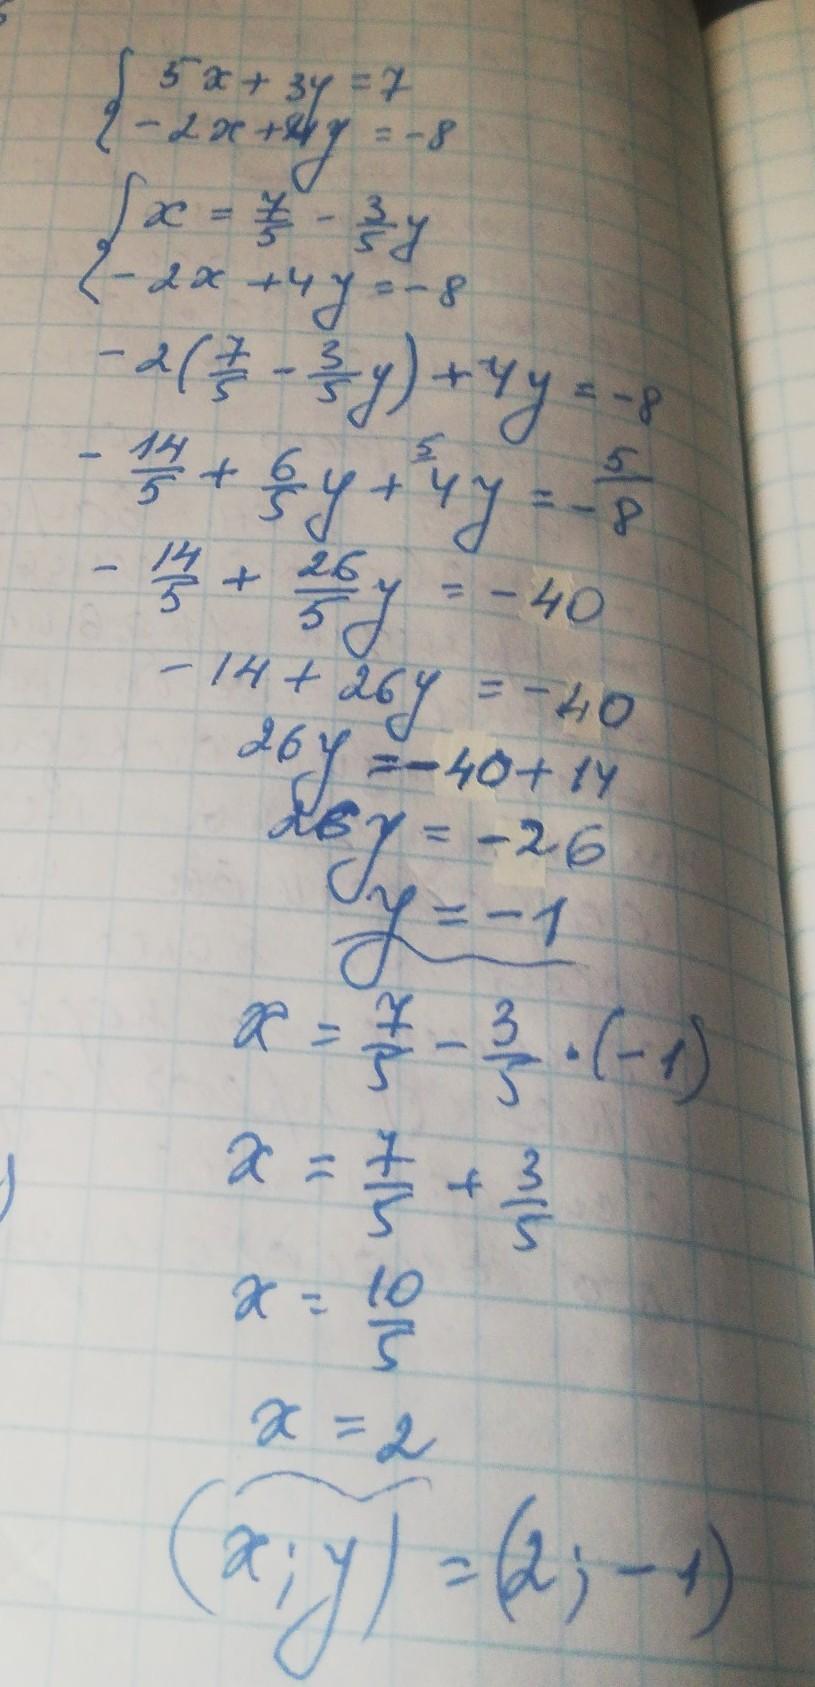 5x + 3y = 7
-2x + 4y = -8
x = 7/5 - 3/5 y
-2x + 4y = -8
-2(7/5 - 3/5 y) + 4y = -8
-14/5 + 6/5 y + 5/ 4y = - 5/ 8
-14/5 + 26/5 y = -40
-14 + 26y = -40
26y = -40 + 14
26y = -26
y = -1
x = 7/5 - 3/5 · (-1)
x = 7/5 + 3/5
x = 10/5
x = 2
(x; y) = (2; -1)